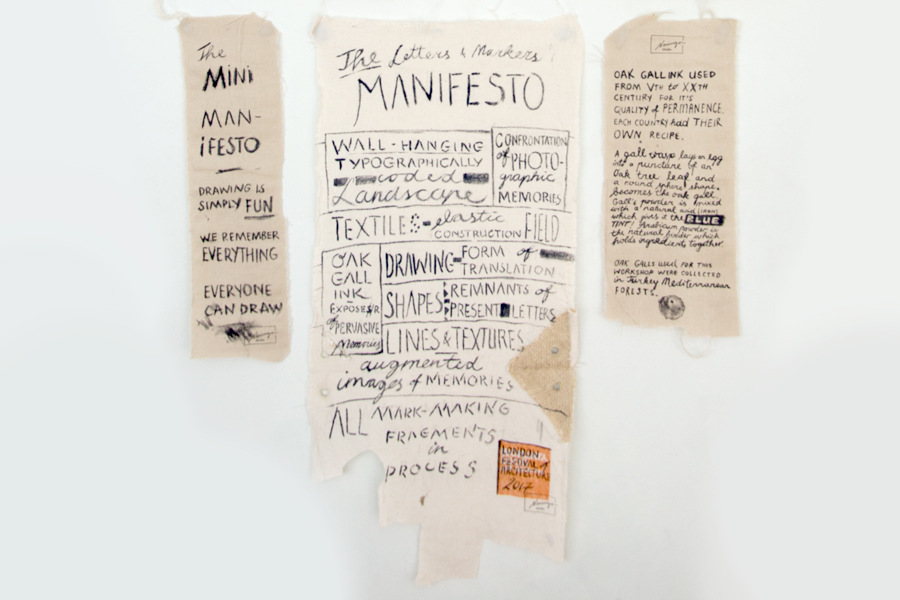 The
MiNi
MAN-
iFESTO
DRAWING IS
SIMPLY FUN
WE REMEMBER
EVERYTHING
EVERYONE
CAN DRAW
The Letters & Markers'
MANIFESTO
WALL-HANGING
TYPOGRAPHICALLY
coded
Landscape
CONFRONTATION
of PHOTO-
graphic
MEMORIES
TEXTILES-elastic
CONSTRUCTION FIELD
OAK
GALL
INK
EXPOSER
of PERVASIVE
Memories
DRAWING-FORM of
TRANSLATION
SHAPES: REMNANTS of
PRESENT LETTERS
LINES & TEXTURES
augmented
images of MEMORIES
ALL MARK-MAKING
FRAGMENTS
in
PROCESS
LONDON
FESTIVAL
ARCITECTURE
2017
OAK GALL INK USED
FROM VTH to XXTH
CENTURY FOR IT'S
QUALITY of PERMANENCE.
EACH COUNTRY had THEIR
OWN RECIPE.
A gall wasp lays an egg
into a puncture of an
Oak tree leaf and
a round sphere shape
becomes the oak gall.
Gall's powder is mixed
with a natural and (IRON)
which gives it the BLUE
TINT! Arabicum powder is
the natural binder which
holds ingredients together.
OAK GALLS USED FOR THIS
WORKSHOP WERE COLLECTED
in Turkey Mediterranean
FORESTS.